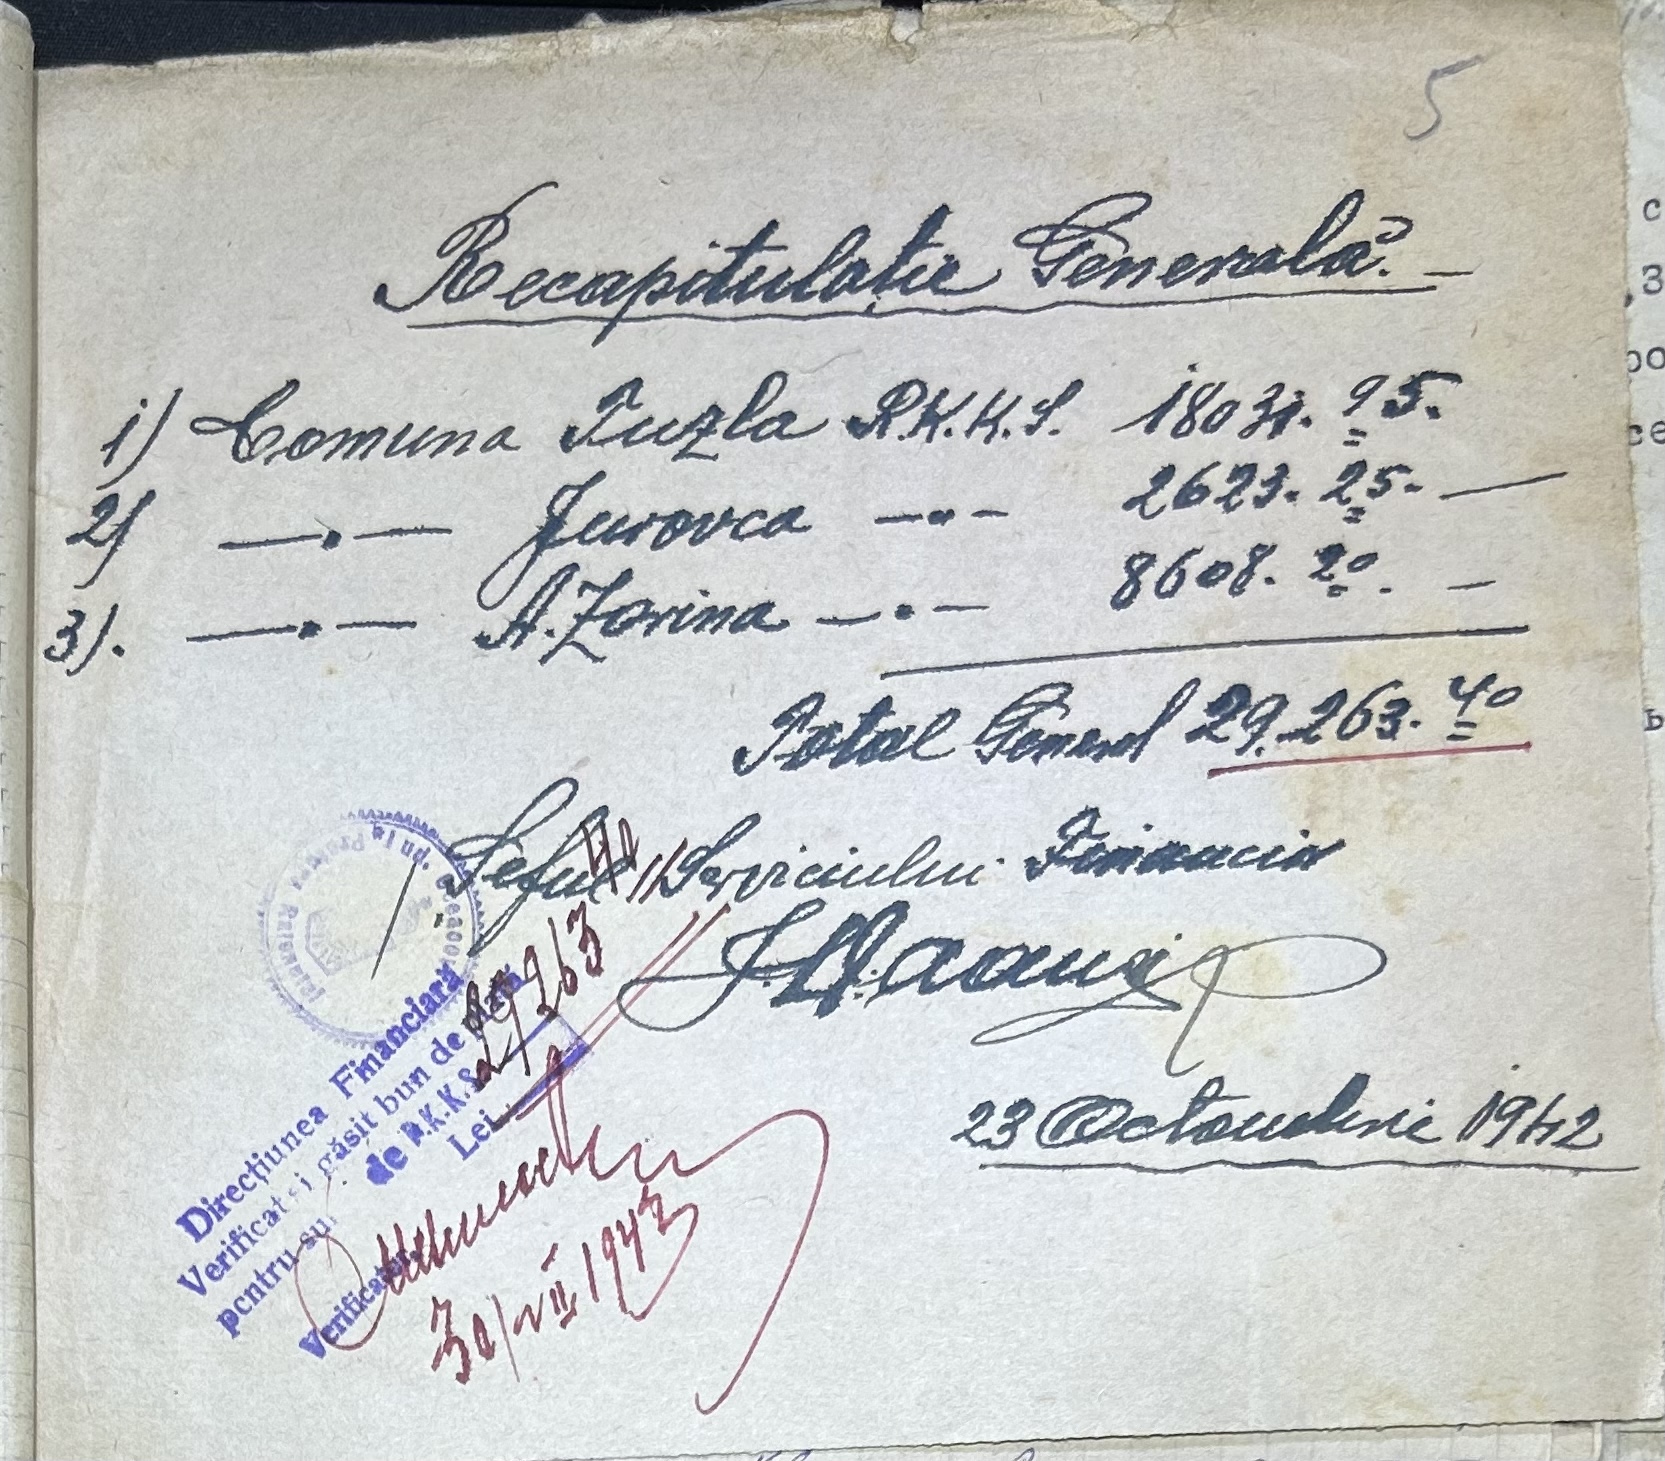 5
Recapitulație Generală. —
1) Comuna Tuzla R.K.K.S. 18031. 95.
2) —•— Jurovca —•— 2623. 25. —
3). —•— A. Zorina —•— 8608. 20. —
Total General 29.263. 40
Șeful Serviciului Financiar
23 Octombrie 1942
Direcțiunea Financiară
Verificat și găsit bun de plată
pentru su de R.K.K.S. 29263 40
Lei
Verificator,
30/VII 1943